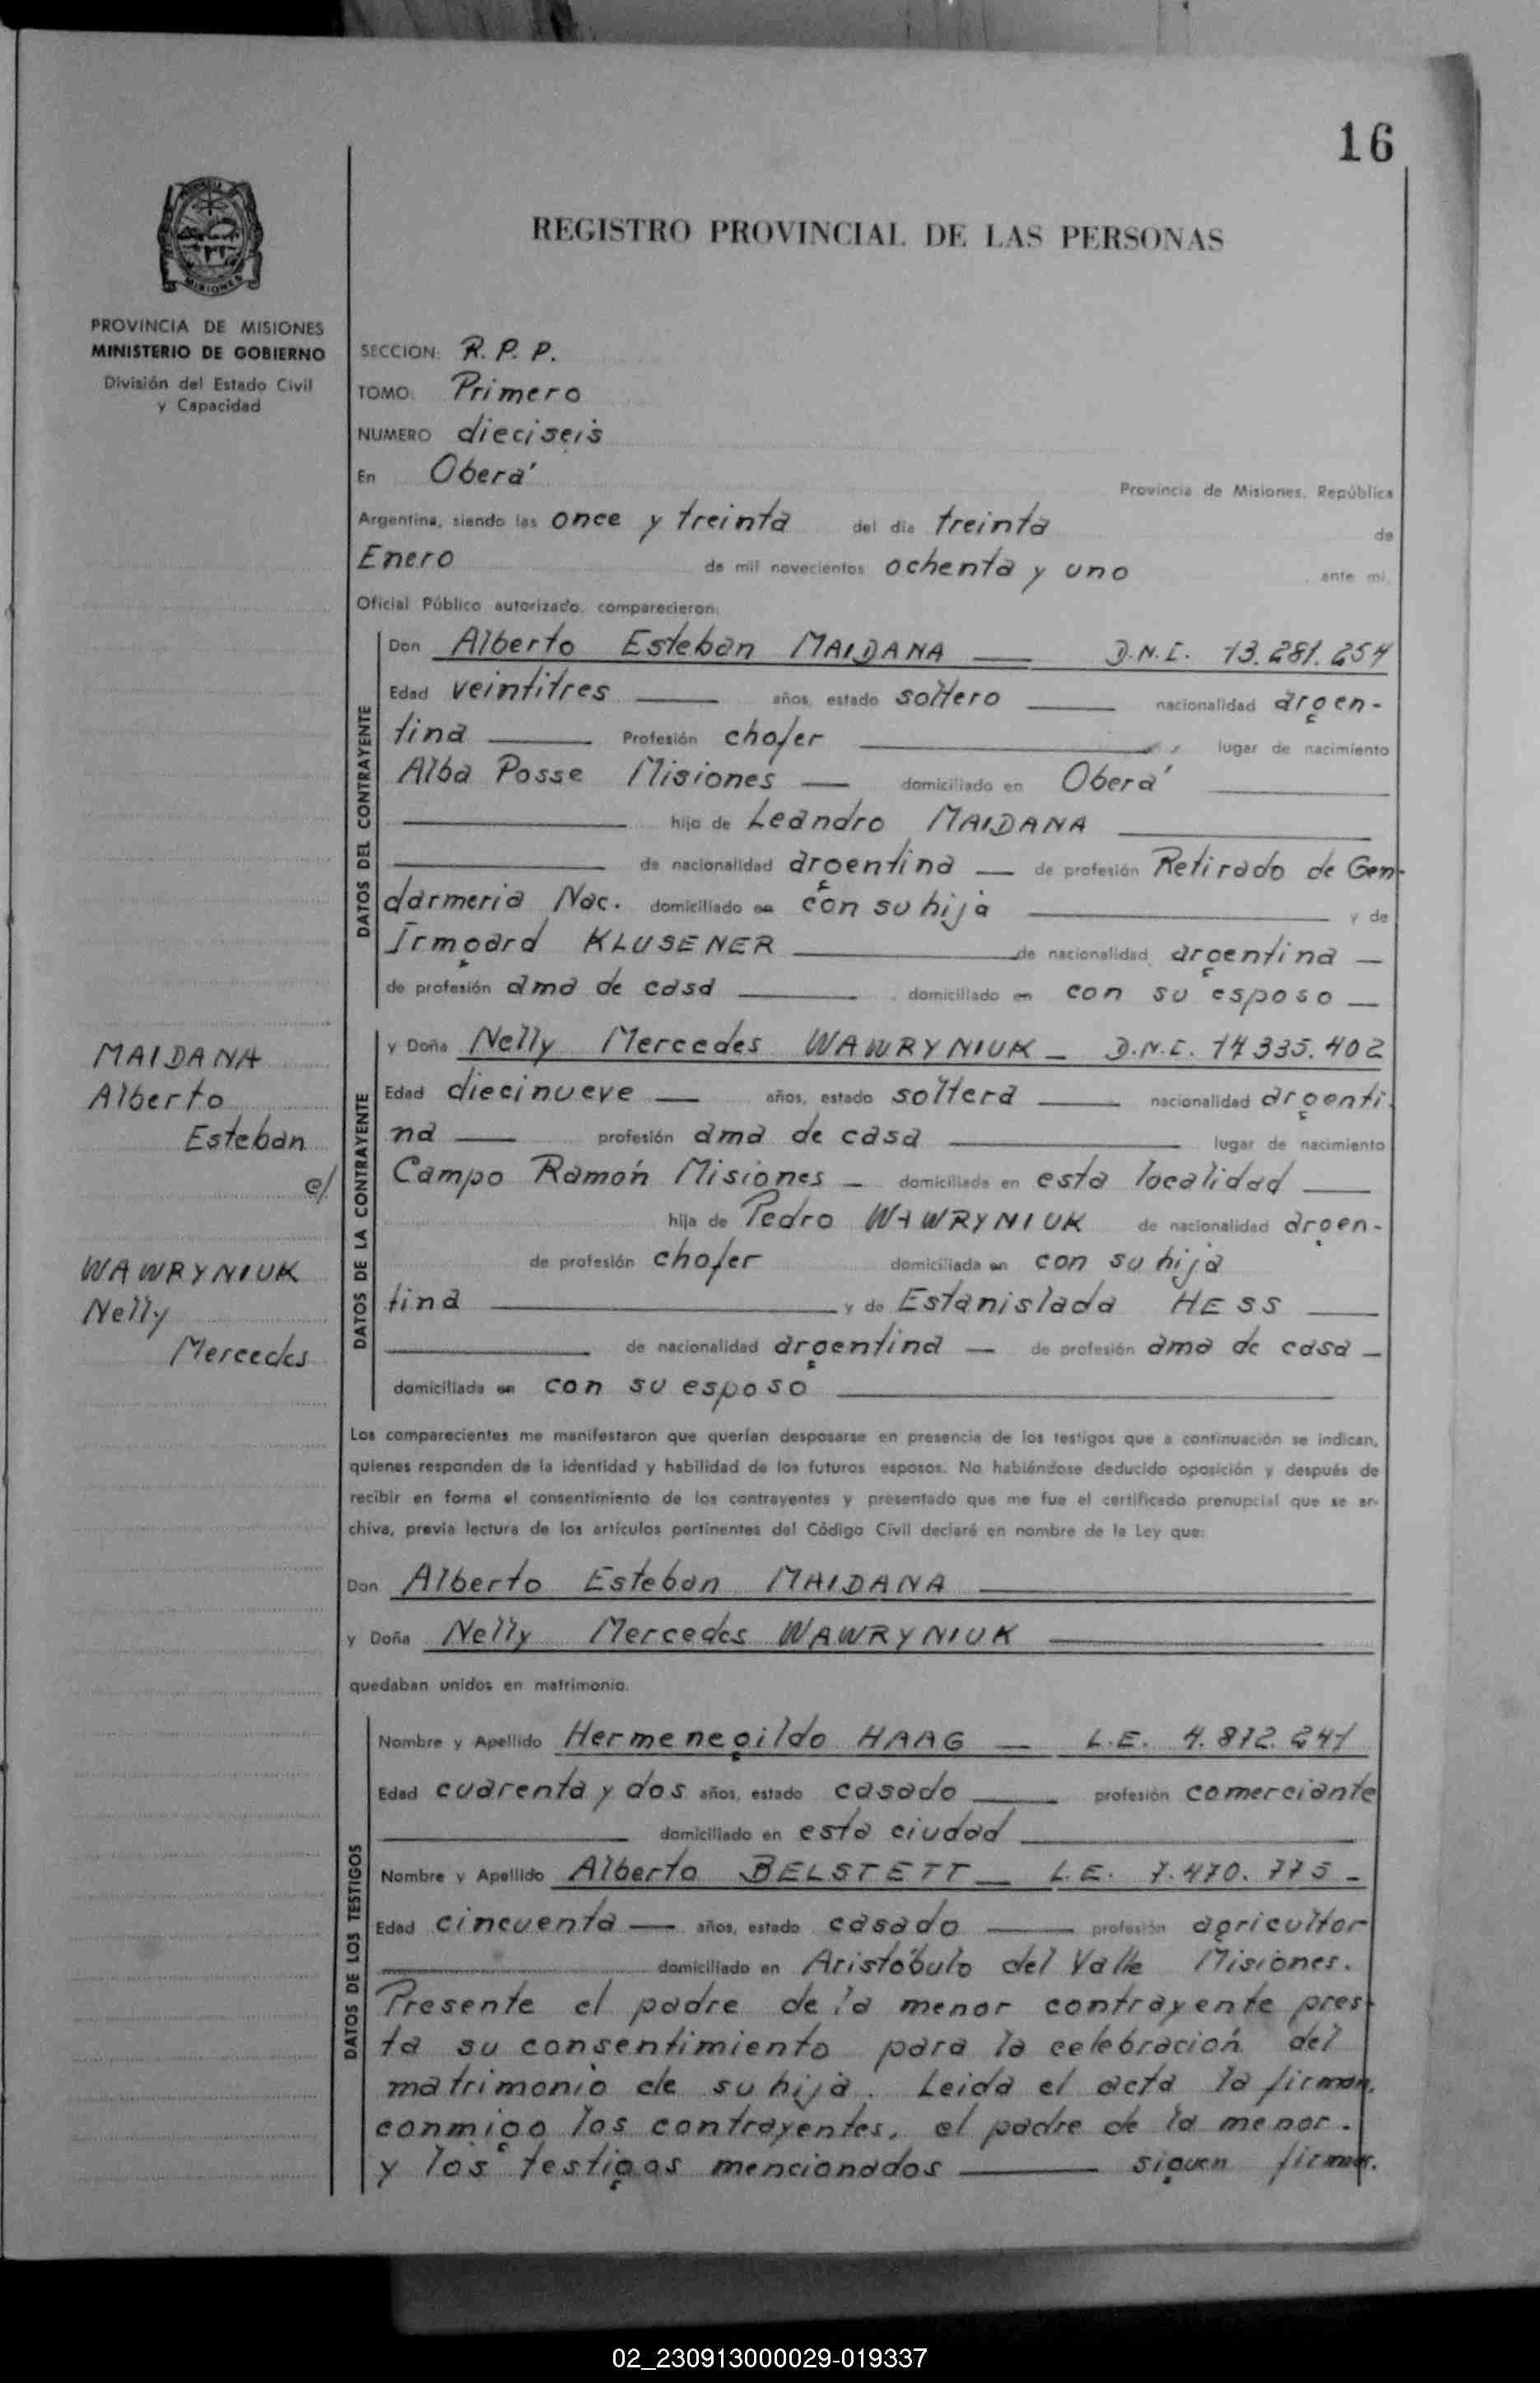 16
REGISTRO PROVINCIAL DE LAS PERSONAS
MISIONES
PROVINCIA DE MISIONES
MINISTERIO DE GOBIERNO
División del Estado Civil
y Capacidad
SECCION: R. P. P.
TOMO: Primero
NUMERO dieciseis
En Oberá Provincia de Misiones, República
Argentina, siendo las once y treinta del día treinta de
Enero de mil novecientos ochenta y uno ante mí,
Oficial Público autorizado, comparecieron:
DATOS DEL CONTRAYENTE
Don Alberto Esteban MAIDANA — D.N.I. 13.281.254
Edad veintitres — años, estado soltero — nacionalidad argen-
tina — Profesión chofer — lugar de nacimiento
Alba Posse Misiones — domiciliado en Oberá —
— hijo de Leandro MAIDANA —
— de nacionalidad argentina — de profesión Retirado de Gen-
darmeria Nac. domiciliado en con su hija — y de
Irmgard KLUSENER — de nacionalidad argentina —
de profesión ama de casa — domiciliado en con su esposo —
DATOS DE LA CONTRAYENTE
y Doña Nelly Mercedes WAWRYNIUK — D.N.I. 14.335.402
Edad diecinueve — años, estado soltera — nacionalidad argenti-
na — profesión ama de casa — lugar de nacimiento
Campo Ramón Misiones — domiciliada en esta localidad —
hija de Pedro WAWRYNIUK de nacionalidad argen-
de profesión chofer domiciliada en con su hija
tina — y de Estanislada HESS —
— de nacionalidad argentina — de profesión ama de casa —
domiciliada en con su esposo —
MAIDANA
Alberto
Esteban
c/
WAWRYNIUK
Nelly
Mercedes
Los comparecientes me manifestaron que querían desposarse en presencia de los testigos que a continuación se indican,
quienes responden de la identidad y habilidad de los futuros esposos. No habiéndose deducido oposición y después de
recibir en forma el consentimiento de los contrayentes y presentado que me fue el certificado prenupcial que se ar-
chiva, previa lectura de los artículos pertinentes del Código Civil declaré en nombre de la Ley que:
Don Alberto Esteban MAIDANA —
y Doña Nelly Mercedes WAWRYNIUK —
quedaban unidos en matrimonio.
DATOS DE LOS TESTIGOS
Nombre y Apellido Hermenegildo HAAG — L.E. 4.812.241
Edad cuarenta y dos años, estado casado — profesión comerciante
— domiciliado en esta ciudad —
Nombre y Apellido Alberto BELSTETT — L.E. 7.470.775 —
Edad cincuenta — años, estado casado — profesión agricultor
— domiciliado en Aristóbulo del Valle Misiones.
Presente el padre de la menor contrayente pres-
ta su consentimiento para la celebración del
matrimonio de su hija. Leida el acta la firman,
conmigo los contrayentes, el padre de la menor.
y los testigos mencionados — siguen firmas.
02_230913000029-019337